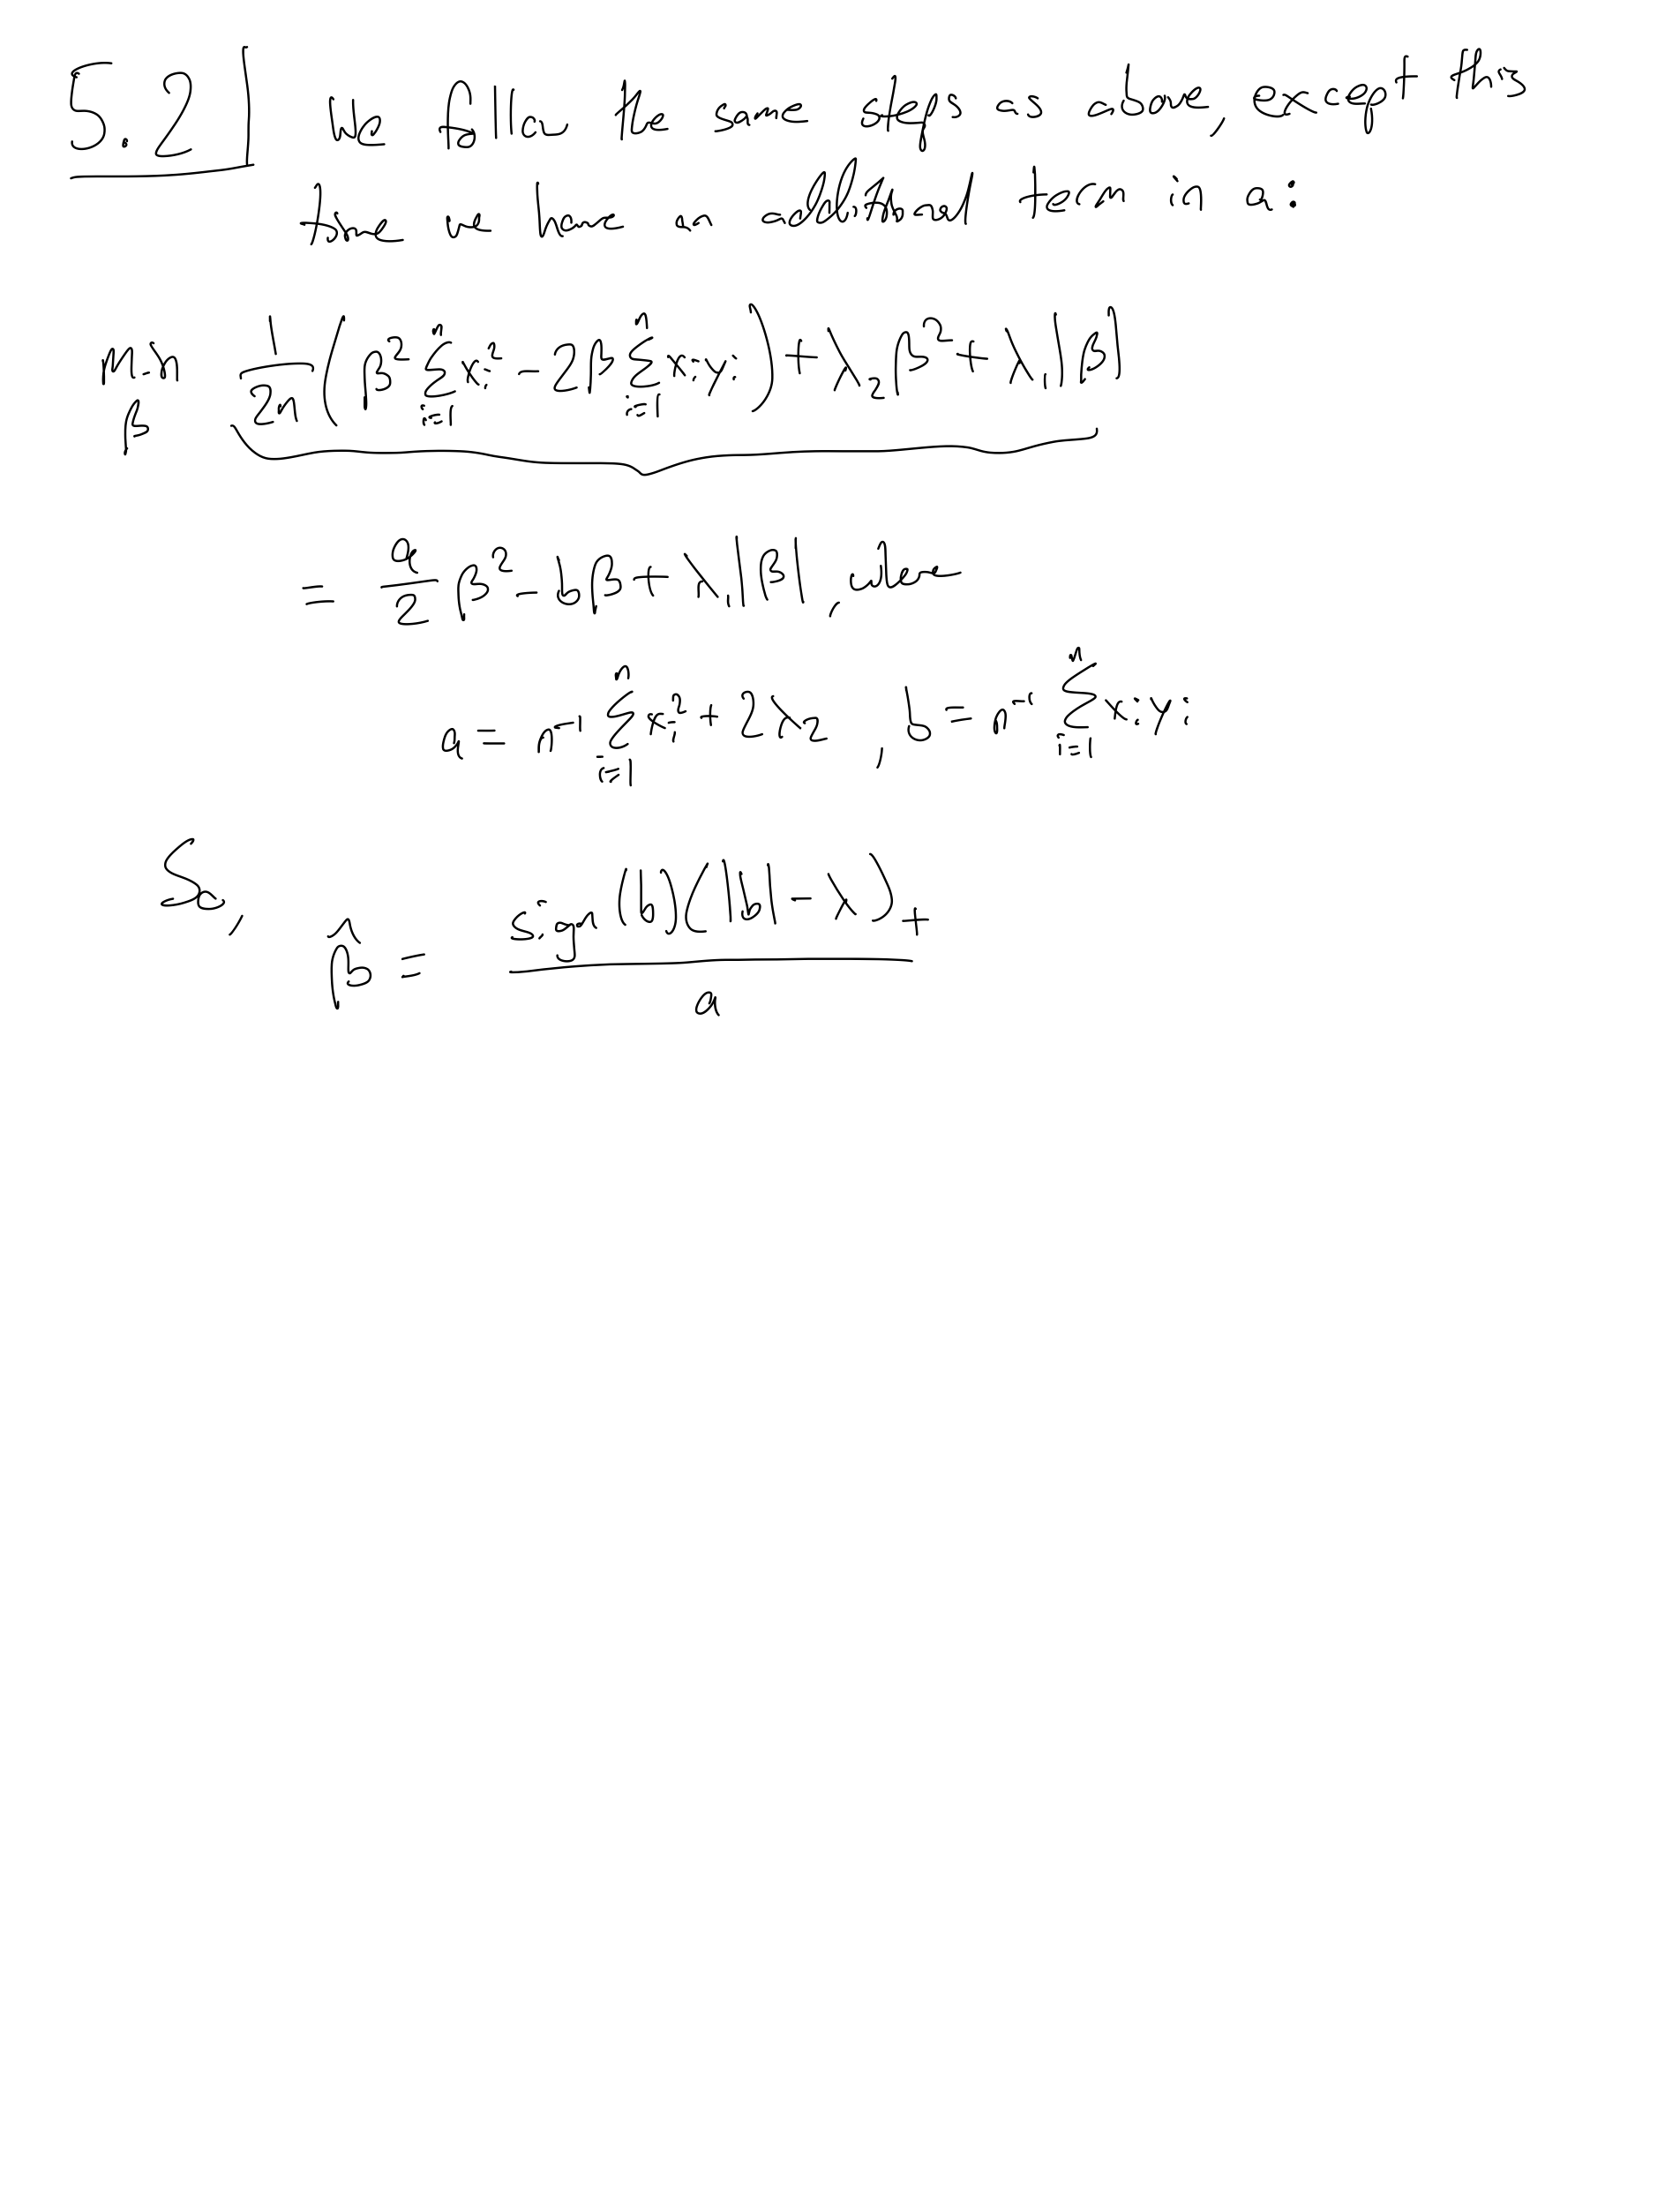 5.2 We follow the same steps as above, except this
time we have an additional term in a:
min_β 1/(2n) (β² Σ_{i=1}^n x_i² - 2β Σ_{i=1}^n x_i y_i) + λ₂ β² + λ₁|β|
= a/2 β² - bβ + λ₁|β|, where
a = n⁻¹ Σ_{i=1}^n x_i² + 2λ₂, b = n⁻¹ Σ_{i=1}^n x_i y_i
So,
β̂ = sign(b)(|b| - λ)₊ / a